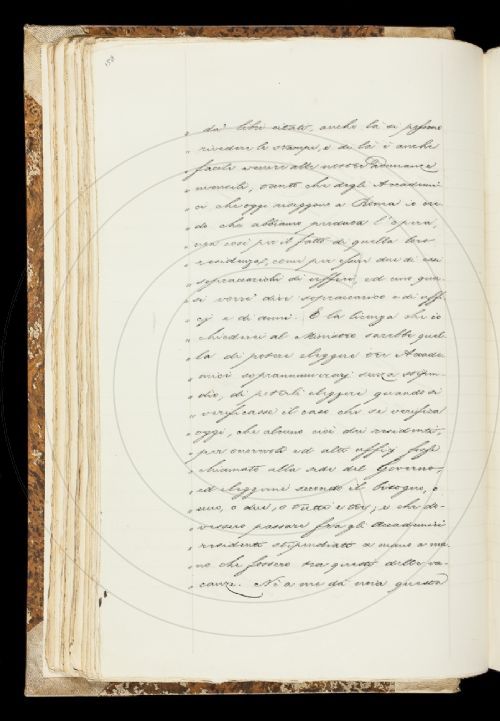 158
" da' libri citati, anche là si possono
" rivedere le stampe, e di là è anche
" facile venire alle nostre Adunanze
" mensili, tanto che degli Accademi-
" ci che oggi risiedono a Roma io cre-
" do che abbiamo perduta l'opera,
" non così per il fatto di quella loro
" residenza, come per esser due di essi
" sopraccarichi di ufficii, ed uno qua-
" si vorrei dire sopraccarico e di uffi-
" cj e di anni. E la licenza che io
" chiederei al Ministro sarebbe quel-
" la di potere eleggere tre Accade-
" mici soprannumerarj senza stipen-
" dio, di poterli eleggere quando si
" verificasse il caso che si verifica
" oggi, che alcuno cioè dei residenti,
" per onorevoli ed alti ufficj fosse
" chiamato alla sede del Governo,
" ed eleggerne secondo il bisogno, o
" uno, o due, o tutti e tre; e che do-
" vessero passare fra gli Accademici
" residenti stipendiati a mano a ma-
" no che fossero tra questi delle va-
" canze. Nè a me dà noia questa